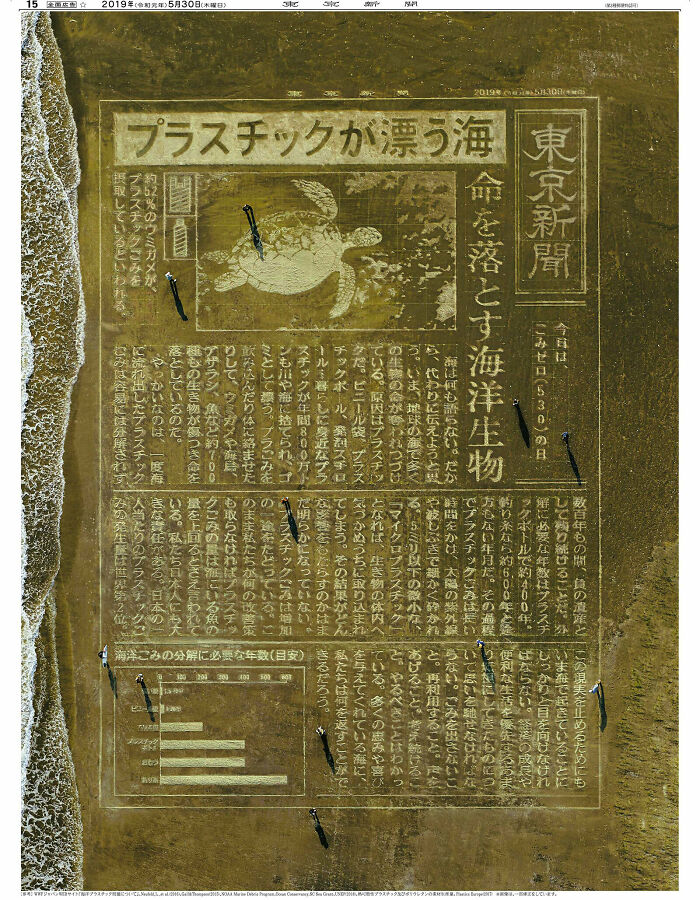 15 全面広告 ☆ 2019年(令和元年)5月30日(木曜日) 東京新聞 (第3種郵便物認可)
東京新聞 2019年(令和元年)5月30日(木曜日)
東京新聞
プラスチックが漂う海
命を落とす海洋生物
約52%のウミガメが、
プラスチックごみを
摂取しているといわれる。
今日は、
ごみゼロ(530)の日
海は何も語らない。だか
ら、代わりに伝えようと思
う。いま、地球の海で多く
の生物の命が奪われつづけ
ている。原因はプラスチッ
クだ。ビニール袋、プラス
チックボトル、発泡スチロ
ール…暮らしに身近なプラ
スチックが年間800万ト
ンも川や海に捨てられ、ゴ
ミとして漂う。プラごみを
飲み込んだり体に絡ませた
りして、ウミガメや海鳥、
アザラシ、魚など約700
種もの生き物が傷つき命を
落としているのだ。
やっかいなのは、一度海
に流れ出したプラスチック
ごみは容易には分解されず、
数百年もの間、負の遺産と
して残り続けることだ。分
解に必要な年数はプラスチ
ックボトルで約400年。
釣り糸なら約600年と途
方もない年月だ。その過程
でプラスチックごみは長い
時間をかけ、太陽の紫外線
や波しぶきで細かく砕かれ
る。5ミリ以下の微小な、
「マイクロプラスチック」
となれば、生物の体内へ
気づかぬうちに取り込まれ
てしまう。その結果がどん
な影響をもたらすのかはま
だ明らかになっていない。
プラスチックごみは増加
の一途をたどっている。こ
のまま私たちが何の改善策
も取らなければプラスチッ
クごみの量は海にいる魚の
量を上回るとさえ言われて
いる。私たち日本人にも大
きな責任がある。日本の一
人当たりのプラスチックご
みの発生量は世界第2位。
この現実を止めるためにも
いま海で起きていることに
しっかりと目を向けなけれ
ばならない。経済の成長や
便利な生活を優先するあま
り犠牲にしてきたものにつ
いて思いを馳せなければな
らない。ごみを出さないこ
と。再利用すること。声を
あげること。考え続けるこ
と。やるべきことはわかっ
ている。多くの恵みや喜び
を与えてくれている海に、
私たちは何を返すことがで
きるだろう。
海洋ごみの分解に必要な年数(目安)
0 100 200 300 400 500 600
プラスチック
おむつ
釣り糸